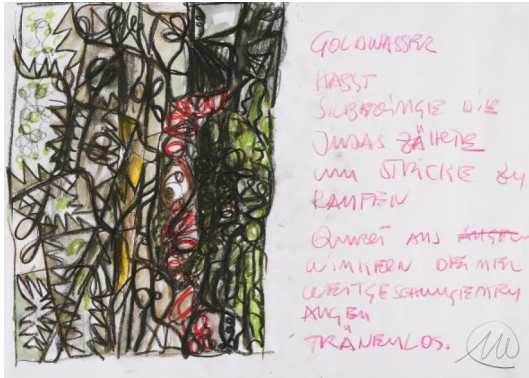 GOLDWASSER
HASST
SILBERLINGE DIE
JUDAS ZÄHLTE
UM STRICKE ZU
KAUFEN
QUILLT AUS
WIMPERN DEINER
WEITGESCHWUNGENEN
AUGEN
TRÄNENLOS.